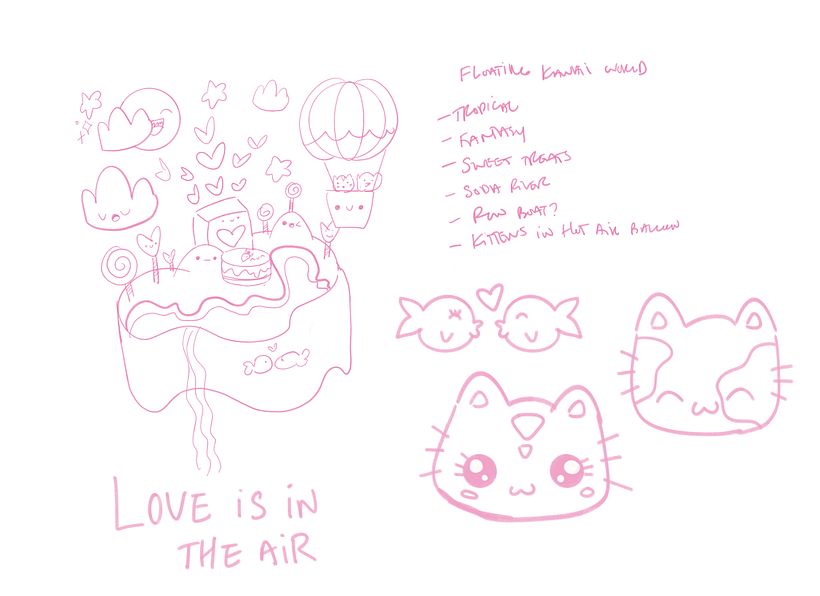 FLOATING KAWAII WORLD
- TROPICAL
- FANTASY
- SWEET TREATS
- SODA RIVER
- ROW BOAT?
- KITTENS IN HOT AIR BALLOON
LOVE IS IN
THE AIR